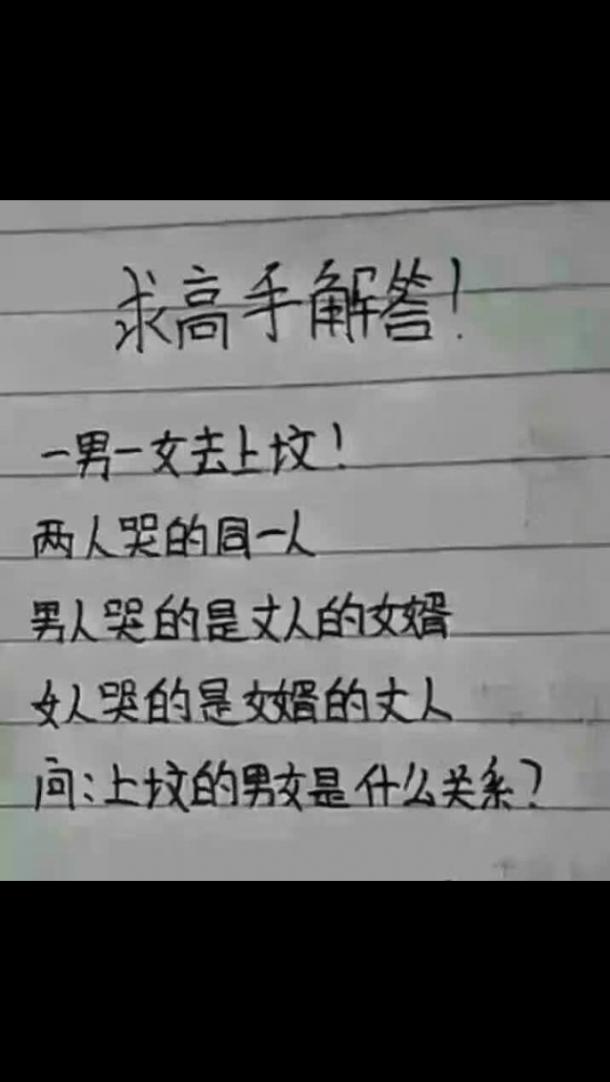 求高手解答！
一男一女去上坟！
两人哭的同一人
男人哭的是丈人的女婿
女人哭的是女婿的丈人
问：上坟的男女是什么关系？